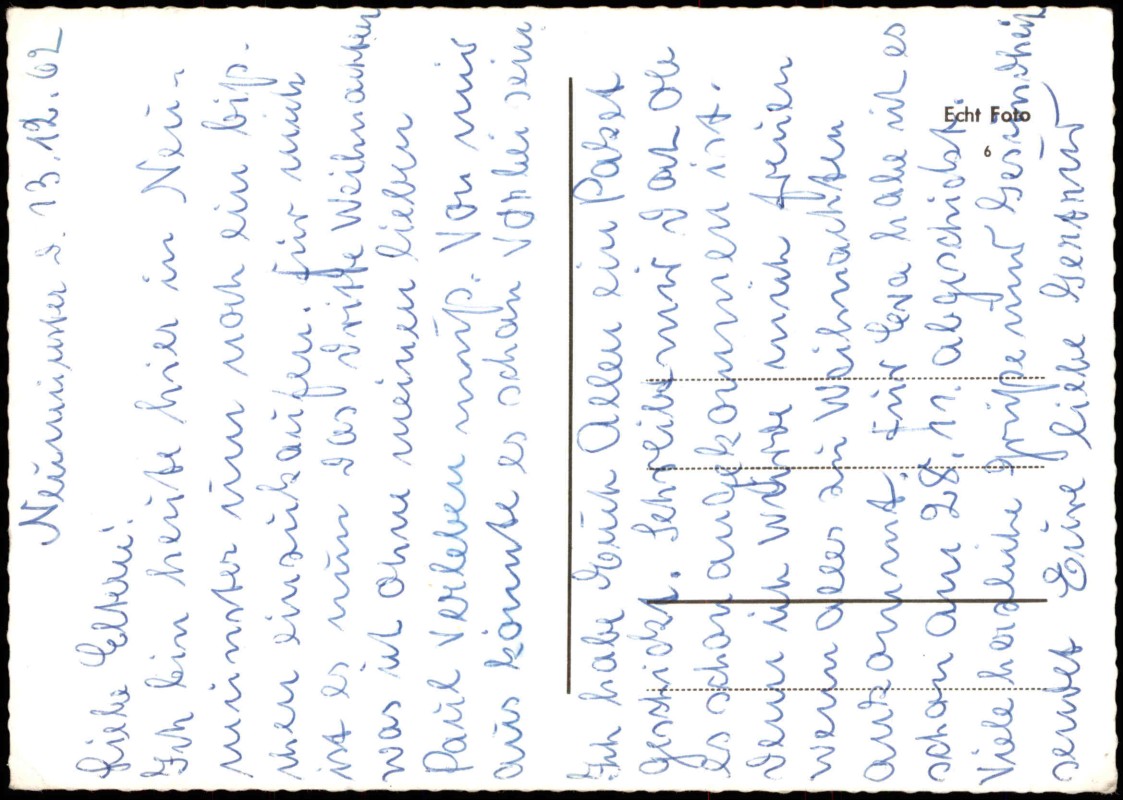 Neumünster d. 13.12.62
Liebe Eltern!
Ich bin heute hier in Neu-
münster um noch ein biß-
chen einzukaufen. Für mich
ist es nun das dritte Weihnachten
was ich ohne meinen lieben
Paul verleben muß. Von mir
aus könnte es schon vorbei sein
Ich habe Euch Allen ein Paket
geschickt. Schreibt mir I ob
es schon angekommen ist.
Denn ich würde mich freuen
wenn alles zu Weihnachten
ankommt. Für Eva habe ich es
schon am 28.11. abgeschickt.
Viele herzliche Grüße und Gesundheit
sendet Eure liebe Gertrud
Echt Foto
6